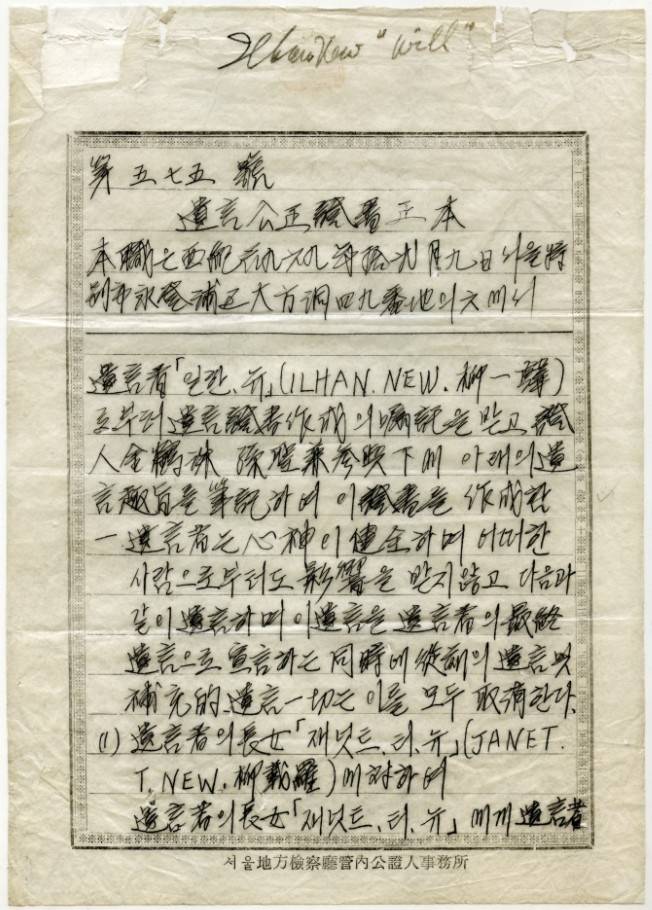 Ilhan New "Will"
第五七五號
遺言公正證書正本
本職은 西紀 一九六九年 拾 月 九日 서울特
別市 永登浦區 大方洞 四九番地의 六에서
遺言者「일한、뉴」(ILHAN. NEW. 柳一韓)
로부터 遺言證書作成의 囑託을 받고 證
人 金 參照下에 아래의 遺
言趣旨를 筆記하여 이 證書를 作成함
一 遺言者는 心神이 健全하며 어떠한
사람으로부터도 影響을 받지 않고 다음과
같이 遺言하며 이 遺言을 遺言者의 最終
遺言으로 宣言하는 同時에 從前의 遺言 및
補充的 遺言 一切는 이를 모두 取消한다.
(1) 遺言者의 長女「재닛트、티、뉴」(JANET.
T. NEW. 柳載羅)에 對하여
遺言者의 長女「재닛트、티、뉴」에게 遺言者
서울地方檢察廳管內公證人事務所